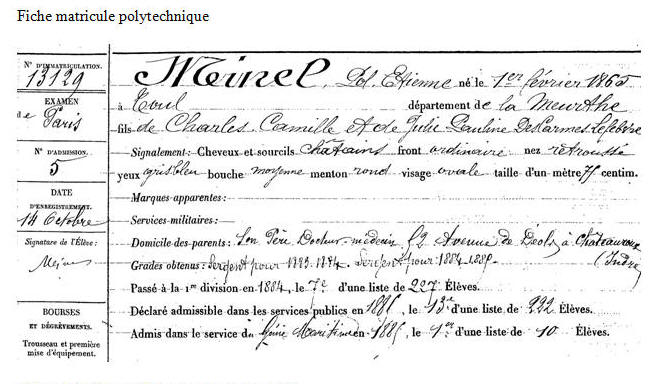 Fiche matricule polytechnique
N° D'IMMATRICULATION.
13129
EXAMEN
de Paris
N° D'ADMISSION.
5
DATE
D'ENREGISTREMENT.
14 Octobre
Signature de l'Élève:
BOURSES
ET DÉGRÈVEMENTS.
Trousseau et première
mise d'équipement.
Meinel, Pol Etienne né le 1er février 1865
à Toul département de la Meurthe
fils de Charles Camille et de Julie Pauline Descarmes Lefebvre
Signalement: Cheveux et sourcils châtains front ordinaire nez retroussé
yeux gris bleu bouche moyenne menton rond visage ovale taille d'un mètre 77 centim.
Marques apparentes:
Services militaires:
Domicile des parents: Son Père Docteur-médecin 52 Avenue de Déols à Châteauroux
(Indre)
Grades obtenus: Sergent pour 1883-1884. Sergent pour 1884-1885.
Passé à la 1re division en 1884, le 7e d'une liste de 227 Élèves.
Déclaré admissible dans les services publics en 1885, le 13e d'une liste de 222 Élèves.
Admis dans le service du Génie Maritime en 1885, le 1er d'une liste de 10 Élèves.